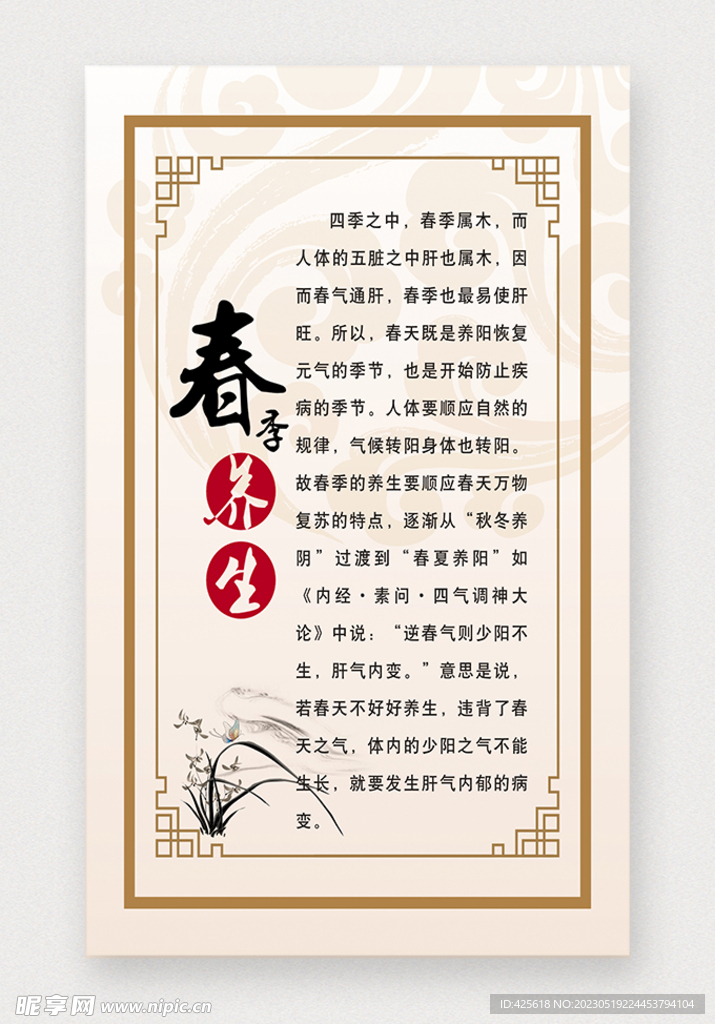 春季
养生
四季之中，春季属木，而
人体的五脏之中肝也属木，因
而春气通肝，春季也最易使肝
旺。所以，春天既是养阳恢复
元气的季节，也是开始防止疾
病的季节。人体要顺应自然的
规律，气候转阳身体也转阳。
故春季的养生要顺应春天万物
复苏的特点，逐渐从“秋冬养
阴”过渡到“春夏养阳”如
《内经·素问·四气调神大
论》中说：“逆春气则少阳不
生，肝气内变。”意思是说，
若春天不好好养生，违背了春
天之气，体内的少阳之气不能
生长，就要发生肝气内郁的病
变。
昵享网 www.nipic.cn
ID:425618 NO:20230519224453794104